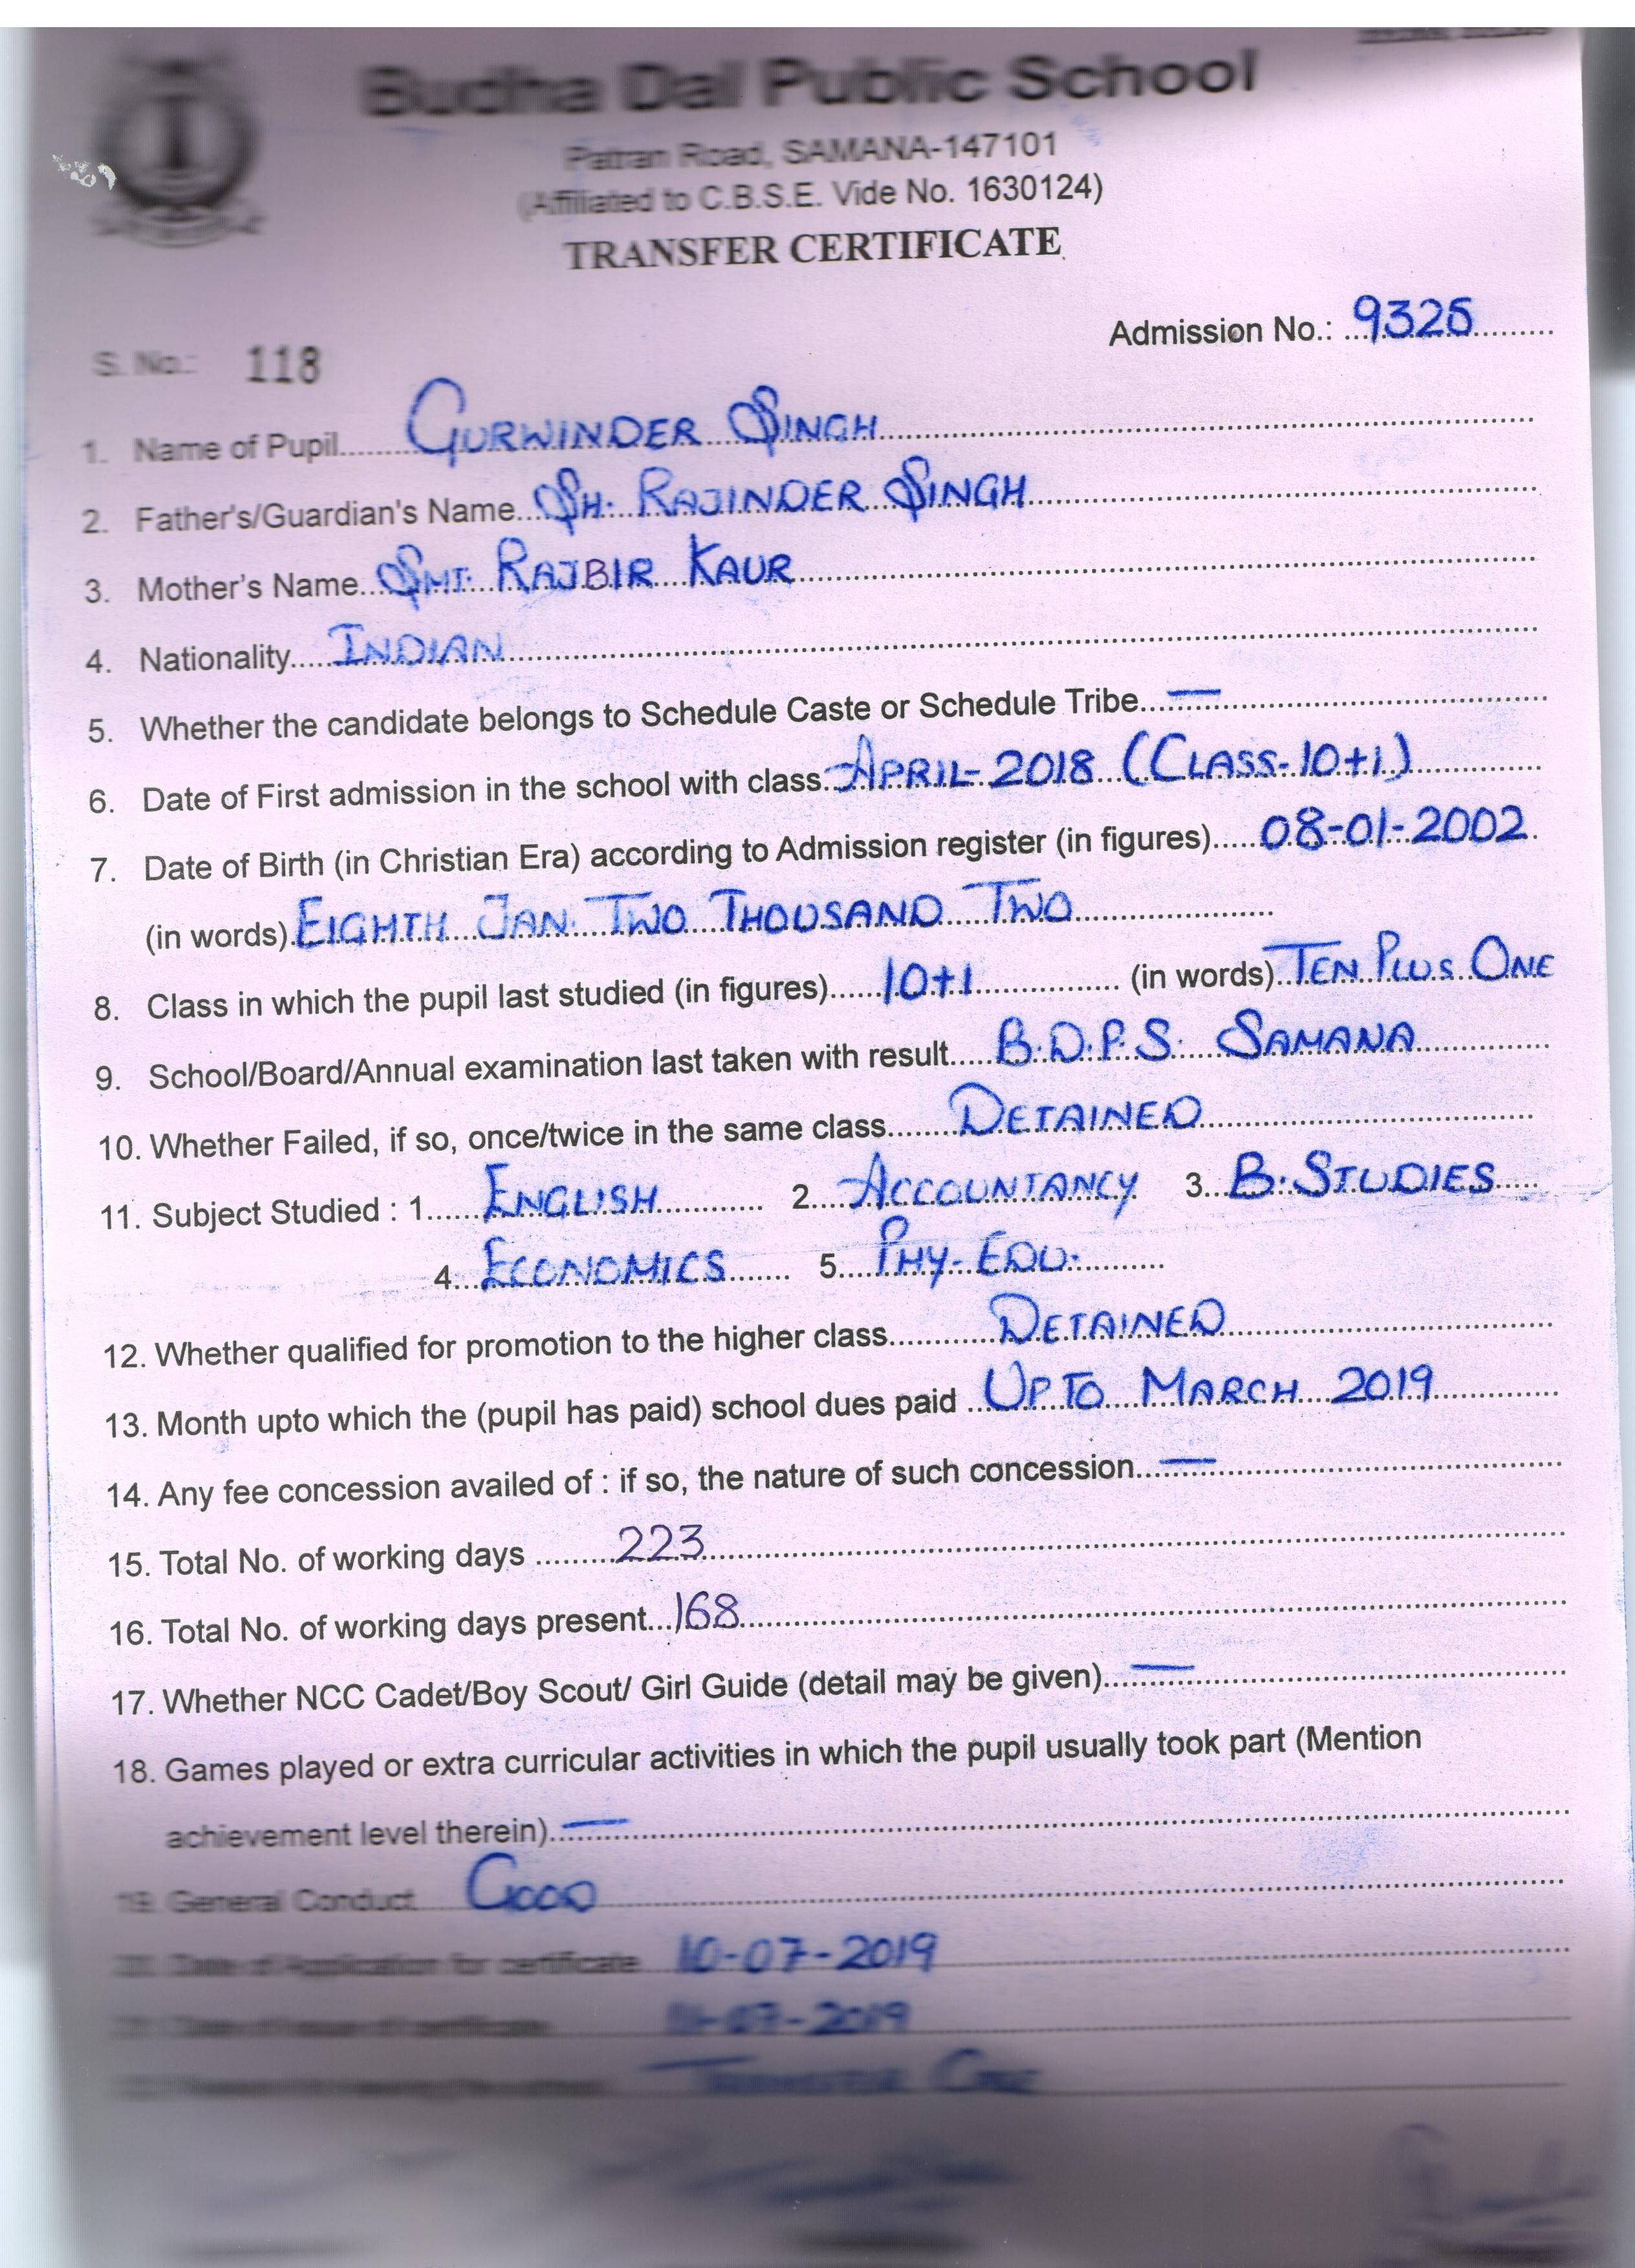 Budha Dal Public School
Patran Road, SAMANA-147101
(Affiliated to C.B.S.E. Vide No. 1630124)
TRANSFER CERTIFICATE
Admission No.: 9325
S. No.: 118
1. Name of Pupil GURWINDER SINGH
2. Father's/Guardian's Name SH. RAJINDER SINGH
3. Mother's Name SMT. RAJBIR KAUR
4. Nationality INDIAN
5. Whether the candidate belongs to Schedule Caste or Schedule Tribe —
6. Date of First admission in the school with class APRIL-2018 (CLASS-10+1)
7. Date of Birth (in Christian Era) according to Admission register (in figures) 08-01-2002
(in words) EIGHTH JAN. TWO THOUSAND TWO
8. Class in which the pupil last studied (in figures) 10+1 (in words) TEN PLUS ONE
9. School/Board/Annual examination last taken with result B.D.P.S. SAMANA
10. Whether Failed, if so, once/twice in the same class DETAINED
11. Subject Studied : 1. ENGLISH 2. ACCOUNTANCY 3. B.STUDIES
4. ECONOMICS 5. PHY-EDU.
12. Whether qualified for promotion to the higher class DETAINED
13. Month upto which the (pupil has paid) school dues paid UPTO MARCH 2019
14. Any fee concession availed of : if so, the nature of such concession —
15. Total No. of working days 223
16. Total No. of working days present 168
17. Whether NCC Cadet/Boy Scout/ Girl Guide (detail may be given) —
18. Games played or extra curricular activities in which the pupil usually took part (Mention
achievement level therein) —
19. General Conduct GOOD
20. Date of Application for certificate 10-07-2019
Date of Issue of certificate -07-2019